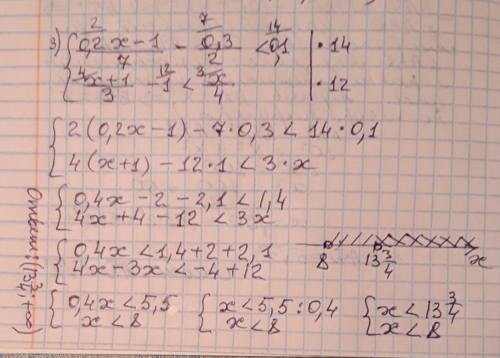 3) { (0,2x-1)/7 - 0,3/2 < 0,1 | · 14
{ (x+1)/3 - 1 < x/4 | · 12
{ 2(0,2x-1) - 7·0,3 < 14·0,1
{ 4(x+1) - 12·1 < 3·x
{ 0,4x - 2 - 2,1 < 1,4
{ 4x + 4 - 12 < 3x
{ 0,4x < 1,4 + 2 + 2,1
{ 4x - 3x < -4 + 12
8 13 3/4 x
{ 0,4x < 5,5 { x < 5,5 : 0,4 { x < 13 3/4
{ x < 8 { x < 8 { x < 8
Ответ: (13 3/4; +∞)